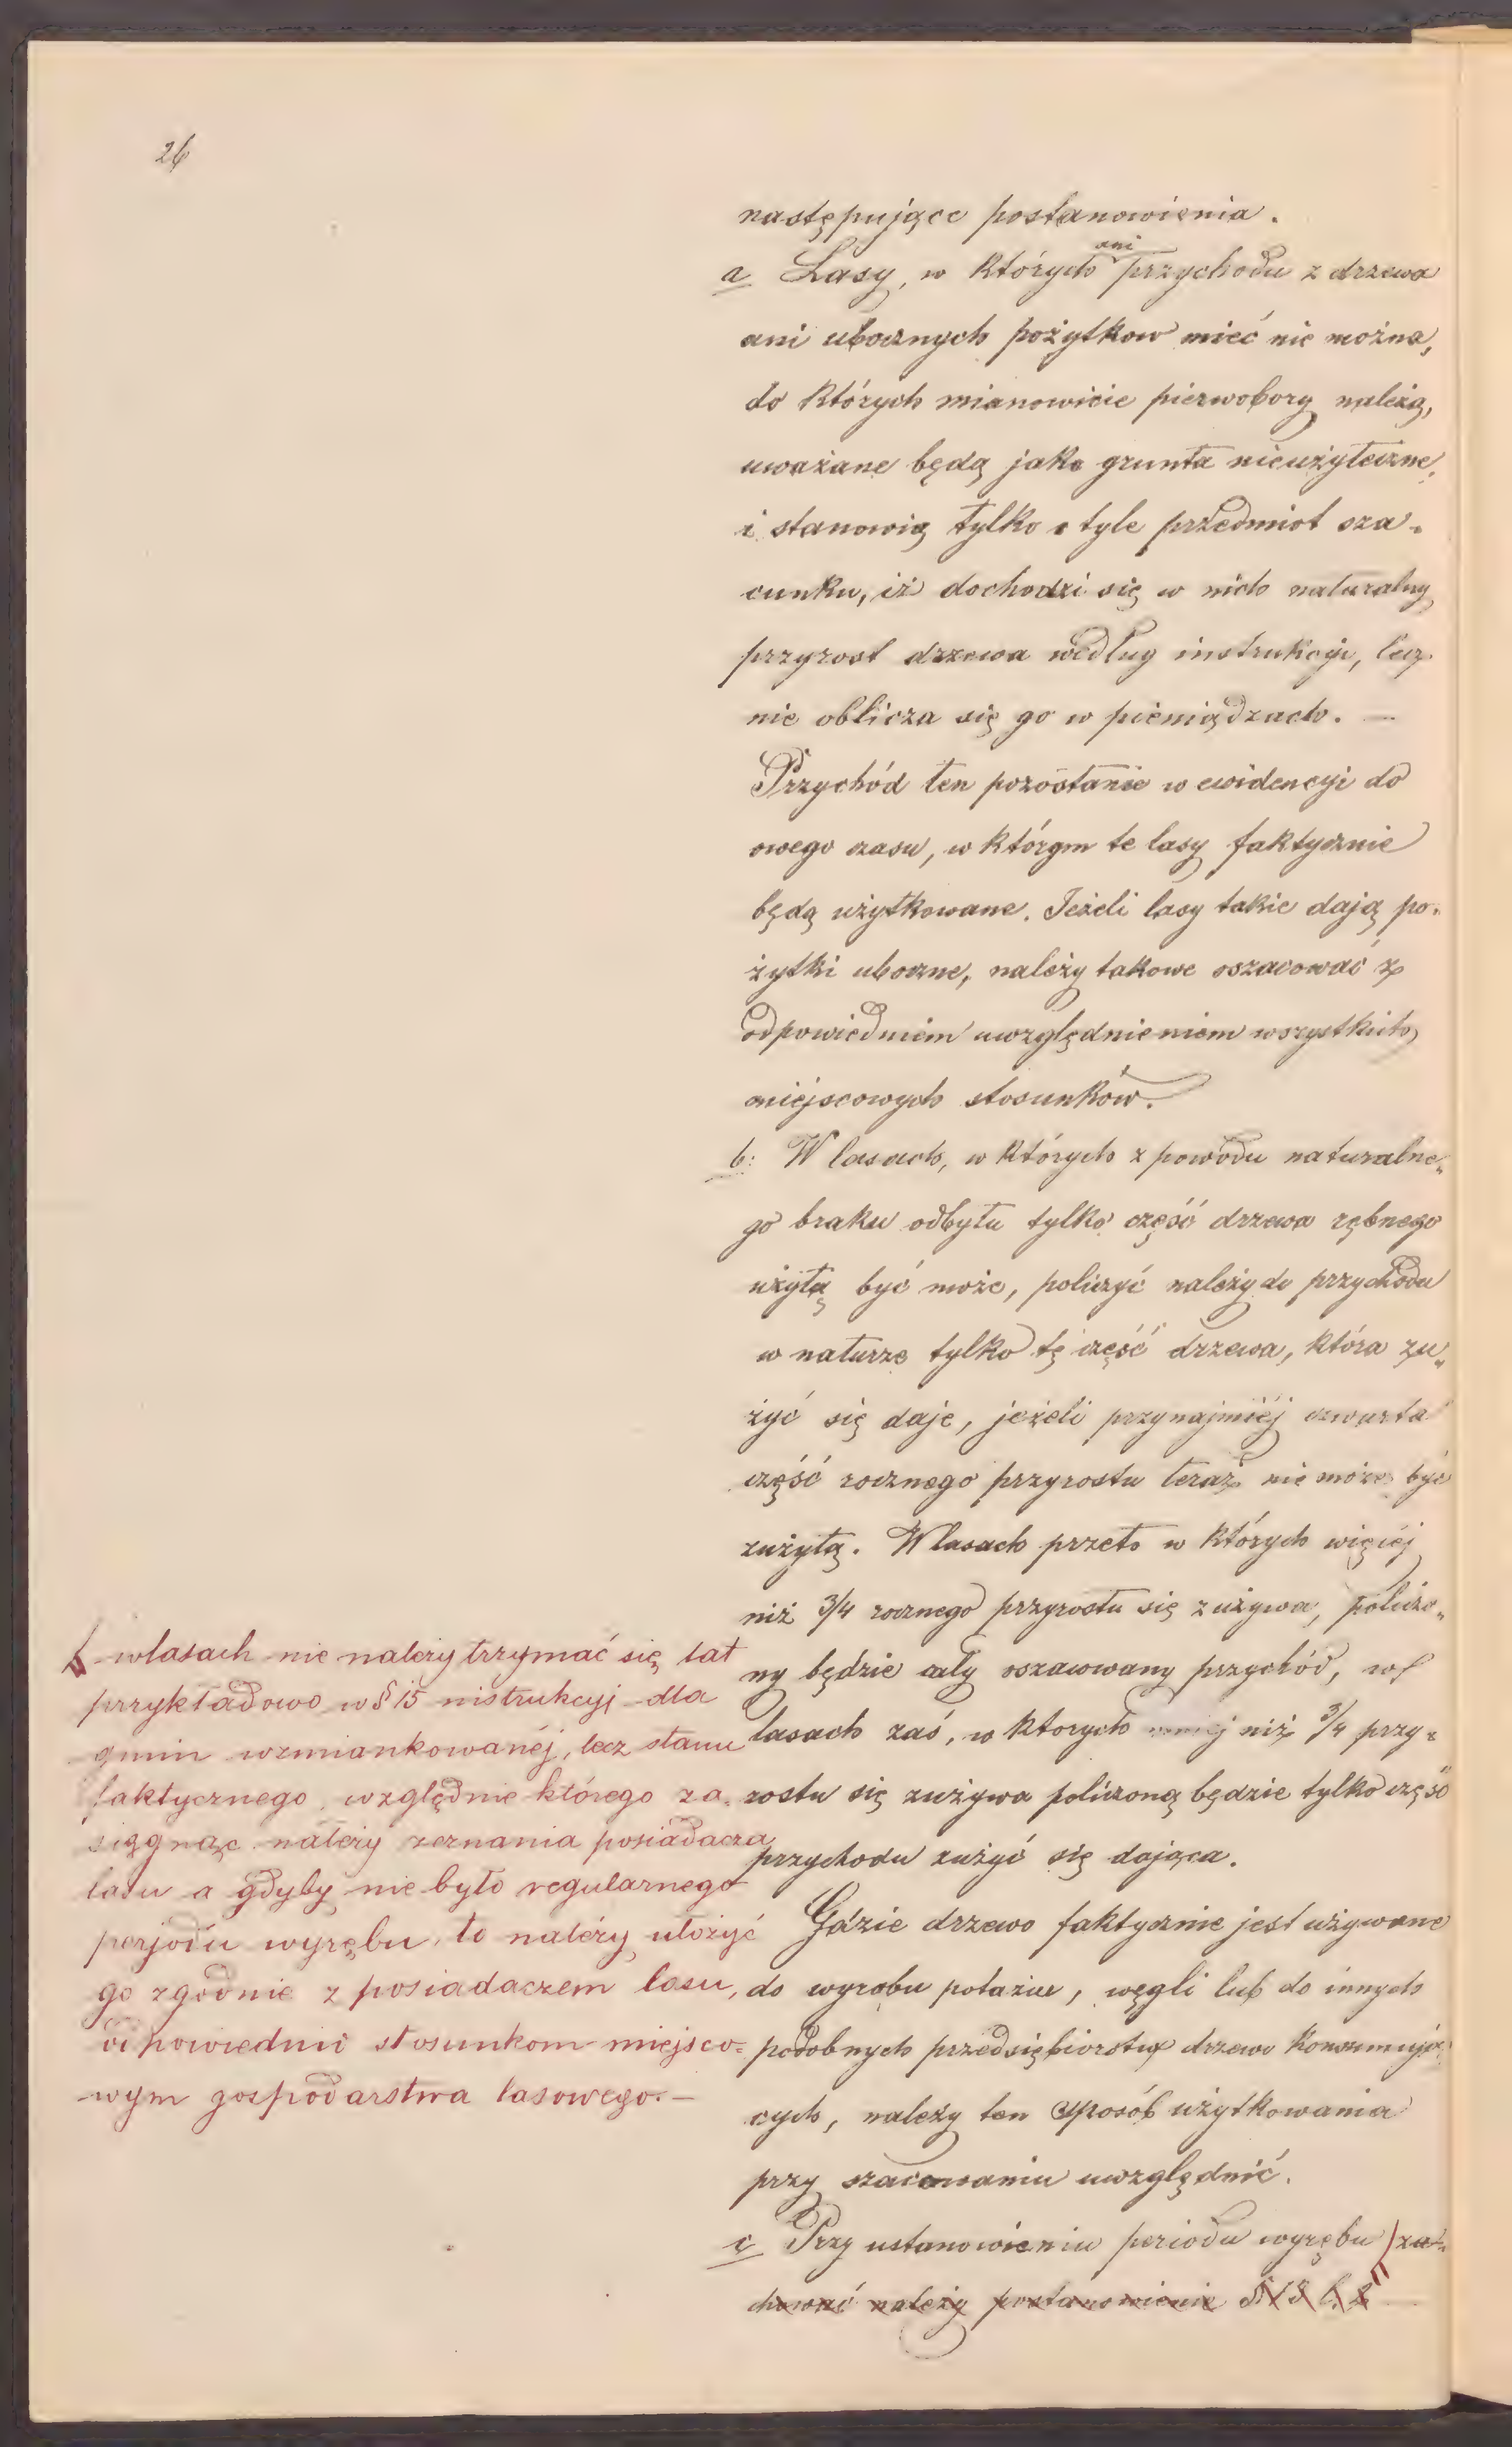 26
następujące postanowienia.
a Lasy, w których ani przychodu z drzewa
ani ubocznych pożytkow mieć nie można,
do których mianowicie pierwobory należą,
uważane będą jako grunta nieużyteczne,
i stanowią tylko o tyle przedmiot sza-
cunku, iż dochodzi się w nich naturalny
przyrost drzewa według instrukcyi, lecz
nie oblicza się go w pieniądzach. —
Przychód ten pozostanie w ewidencyi do
owego czasu, w którym te lasy faktycznie
będą użytkowane. Jeżeli lasy takie dają po-
żytki uboczne, należy takowe oszacować z
odpowiedniem uwzględnieniem wszystkich
miejscowych stosunków.
b: W lasach, w których z powodu naturalne-
go braku odbytu tylko część drzewa rębnego
użytą być może, policzyć należy do przychodu
w naturze tylko tę część drzewa, która zu-
żyć się daje, jeżeli przynajmiéj czwarta
część rocznego przyrostu teraz nie może być
zużytą. W lasach przeto w których więcéj
niż 3/4 rocznego przyrostu się zużywa, policzo-
ny będzie cały oszacowany przychód, w
lasach zaś, w ktorych mniej niż 3/4 przy-
rostu się zużywa policzoną będzie tylko część
przychodu zużyć się dająca.
Gdzie drzewo faktycznie jest używane
do wyrobu potażu, węgli lub do innych
podobnych przedsiębiorstw drzewo konsumują-
cych, należy ten sposób użytkowania
przy szacowaniu uwzględnić.
c Przy ustanowieniu periodu wyrębu za-
chować należy postanowienie
w lasach nie należy trzymać się lat
przykładowo w § 15 instrukcyi dla
gmin wzmiankowanéj, lecz stanu
faktycznego, względnie którego za-
sięgnąć należy zeznania posiadacza
lasu a gdyby nie było regularnego
perjodu wyrębu, to należy ułożyć
go zgodnie z posiadaczem lasu,
odpowiednio stosunkom miejsco-
wym gospodarstwa lasowego. —